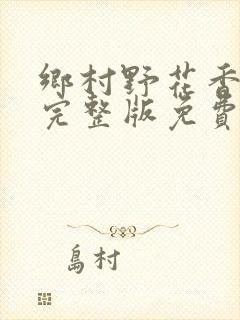 鄉村野花香
完整版免費
島村